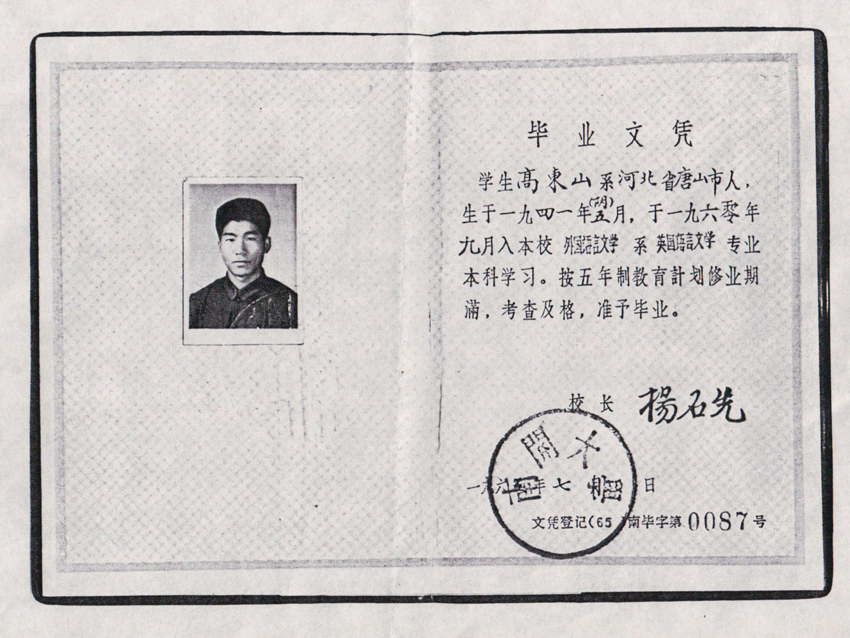 毕业文凭
学生高東山系河北省唐山市人，
生于一九四一年五(阴)月，于一九六零年
九月入本校外国语言文学系英国语言文学专业
本科学习。按五年制教育計划修业期
滿，考查及格，准予毕业。
校长 楊石先
一九六 年七月 日
南開大
文凭登记(65)南毕字第0087号